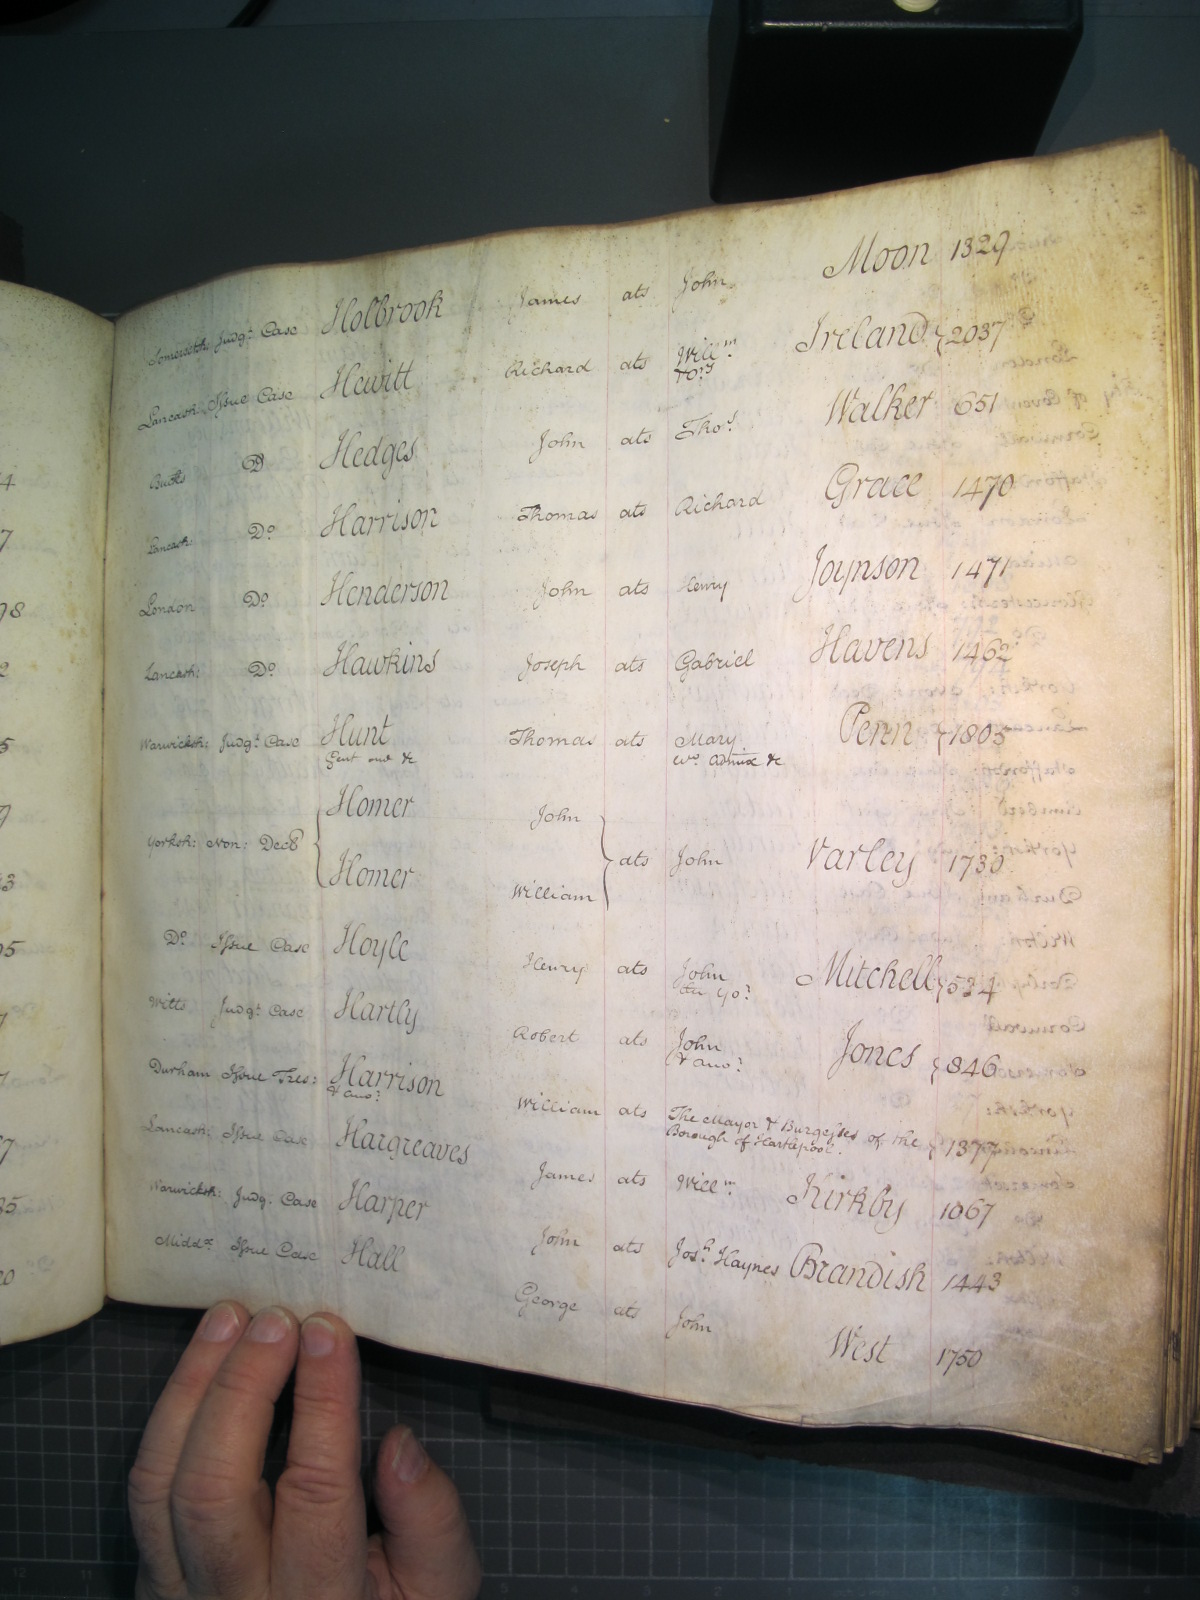 Somersetsh: Judgt. Case Holbrook James ats John Moon 1329
Lancash: Issue Case Hewitt Richard ats Willm. Ireland 2037
& ors
Bucks Do Hedges John ats Thos. Walker 651
Lancash: Do Harrison Thomas ats Richard Grace 1470
London Do Henderson John ats Henry Joynson 1471
Lancash: Do Hawkins Joseph ats Gabriel Havens 1462
Warwicksh: Judgt. Case Hunt Thomas ats Mary Penn 1803
Gent one &c wo. admix &c
Homer John
Yorksh: Non: Dec8 ats John Varley 1730
Homer William
Do Issue Case Hoyle Henry ats John Mitchell 534
the yor.
Wilts Judgt. Case Hartly Robert ats John Jones 846
& anor.
Durham Issue Tres: Harrison William ats The Mayor & Burgesses of the 1377
& anor. Borough of Hartlepool.
Lancash: Issue Case Hargreaves James ats Willm. Kirkby 1067
Warwicksh: Judg. Case Harper John ats Josh. Haynes Brandish 1443
Middx. Issue Case Hall George ats John West 1750